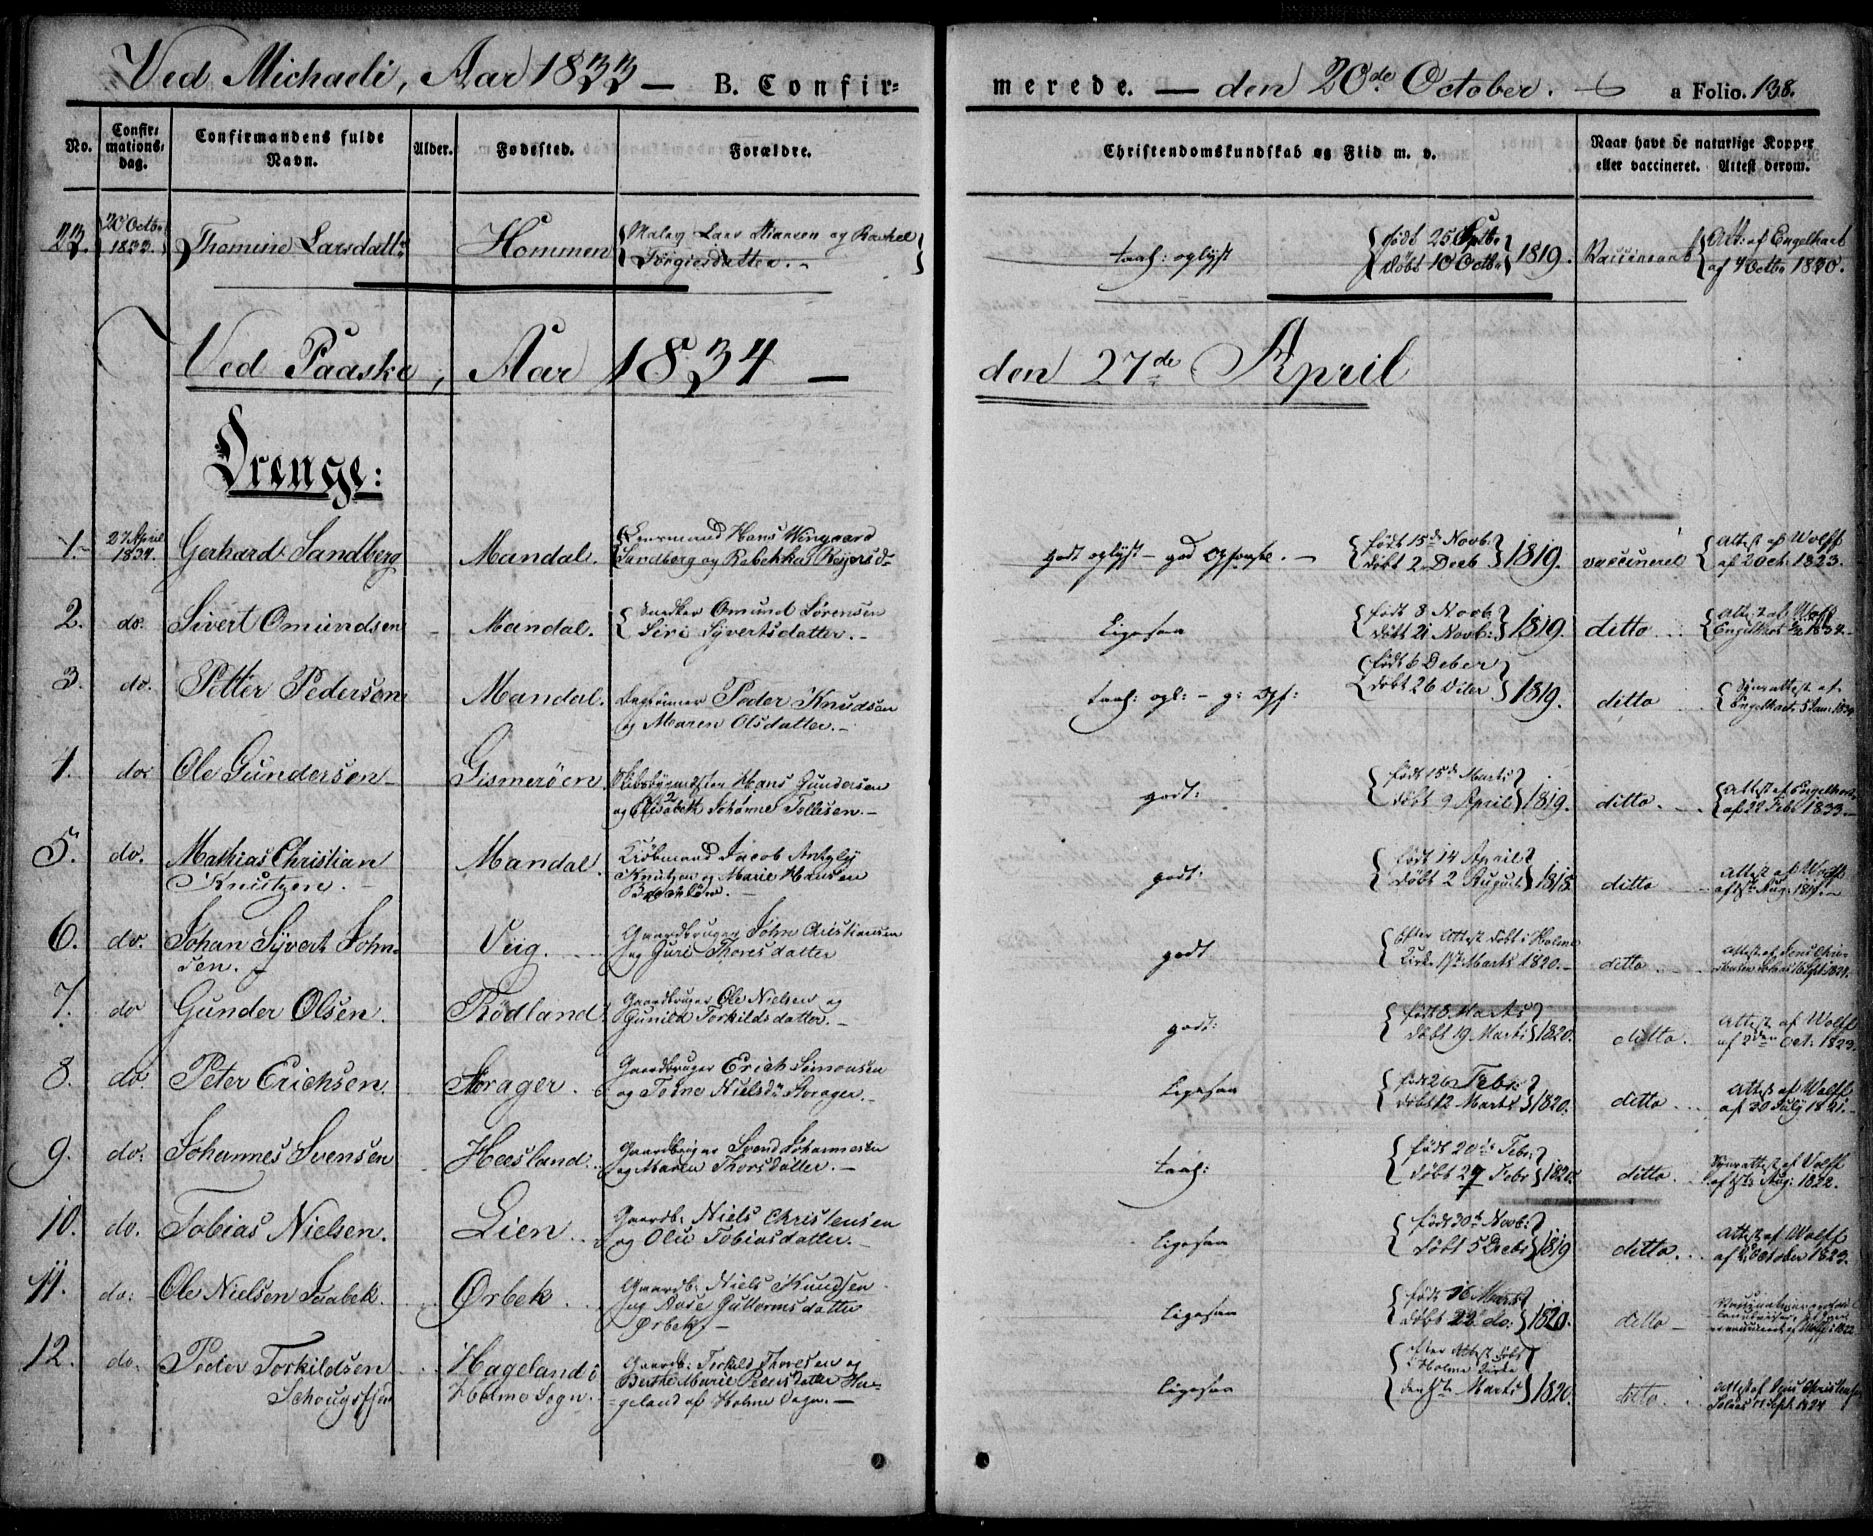 Ved Michaeli, Aar 1833 — B. Confir-
merede. — den 20de October. a Folio. 138.
No. Confirmationsdag. Confirmandens fulde Navn. Alder. Fødested. Forældre.
Christendomskundskab og Flid m. v. Naar havt de naturlige Kopper eller vaccineret. Attest derom.
23. 20 Octbr 1833. Thomine Larsdattr Hommen Lars Hansen og Rachel
Torgiesdatter. —
taal: oplyst født 25 Sptbr døbt 10 Octbr 1819. Att: af Engelhart af 4 Octbr 1830.
Ved Paaske, Aar 1834 —
den 27de April
Drenge:
1. 27 April 1834. Gerhard Sandberg Mandal. Lensmand Hans Wingaard
Sandberg og Rebekka Rejersd-
godt oplyst — god Opførsl. — født 15de Novbr døbt 2 Decb 1819. vaccineret Attest af Wolff af 2 Oct. 1823.
2. do. Sivert Omundsen Mandal. Snedker Omund Sørensen
Siri Syvertsdatter. —
Ligesaa født 8 Novb. døbt 21 Novb: 1819. ditto
3. do. Petter Pedersen Mandal. Peder Knudsen
og Maren Olsdatter. —
taal: opl: — g: Opf: født 6 Deber døbt 26 Diter 1819. ditto Synsattest af Engelhart 5 Jan: 1834
4. do. Ole Gundersen — Gismerøen Skibsbygmester Hans Gundersen
og Elisabeth Johanne Tellisen. —
godt: født 15de Marts døbt 9 April 1819. ditto. Attest af Engelhart af 22 Febr 1833. —
5. do. Mathias Christian
Knutzen. — Mandal. Kiøbmand Jacob
Knutzen og Marie Hansen
godt: født 14 April døbt 2 August 1818. ditto Attest af Wolff
6. do. Johan Syvert John-
sen. — Vüg. Gaardbruger John Cristiansen
og Guri Thoresdatter
godt Efter Attest døbt i Holme
Kirke 17de Marts 1820. — ditto Attest af Jens Chri-
7. do Gunder Olsen. Rödland Gaardbruger Ole Nielsen og
Gunild Torkildsdatter. —
godt: født 8 Marts døbt 19 Marts 1820. ditto. Attest af Wolff af 2den Oct. 1823.
8. do Peter Erichsen. Storager. Gaardbruger Erich Simonsen
og Tobine Nielsd: Storager. —
Ligesaa født 26 Febr: døbt 12 Marts 1820. ditto Attest af Wolff af 30 July 1821. —
9. do: Johannes Svensen Heesland. Gaardbruger Svend Johannesen
og Maren Thorsdatter. —
taal: født 20de Febr: døbt 27 Febr 1820. ditto Synsattest af Wolff Aug: 1822.
10. do. Tobias Nielsen. Lien Gaardb: Niels Christensen
og Olie Tobiasdatter. —
Ligesaa født 30te Novb: døbt 5 Decbr 1819 ditto. Attest af Wolff af 2 October 1823.
11. do: Ole Nielsen Saabek. Ørbek. Gaardb: Niels Knudsen
og Aase Guttormsdatter
Ørbek —
Ligesaa født 16 Marts døbt 22 do: 1820. ditto — Wolff 1822
12. do. Peder Torkildsen
Schougsfjør Hageland i
Holme Sogn. Gaardb: Torkild Thoresen og
Berthe Marie Pedersdatter Ha-
geland af Holme Sogn. —
Ligesaa efter Attest døbt
i Holme Kirke
den 5te Marts 1820. ditto. Attest af Jens Christensen
11 Sept. 1824